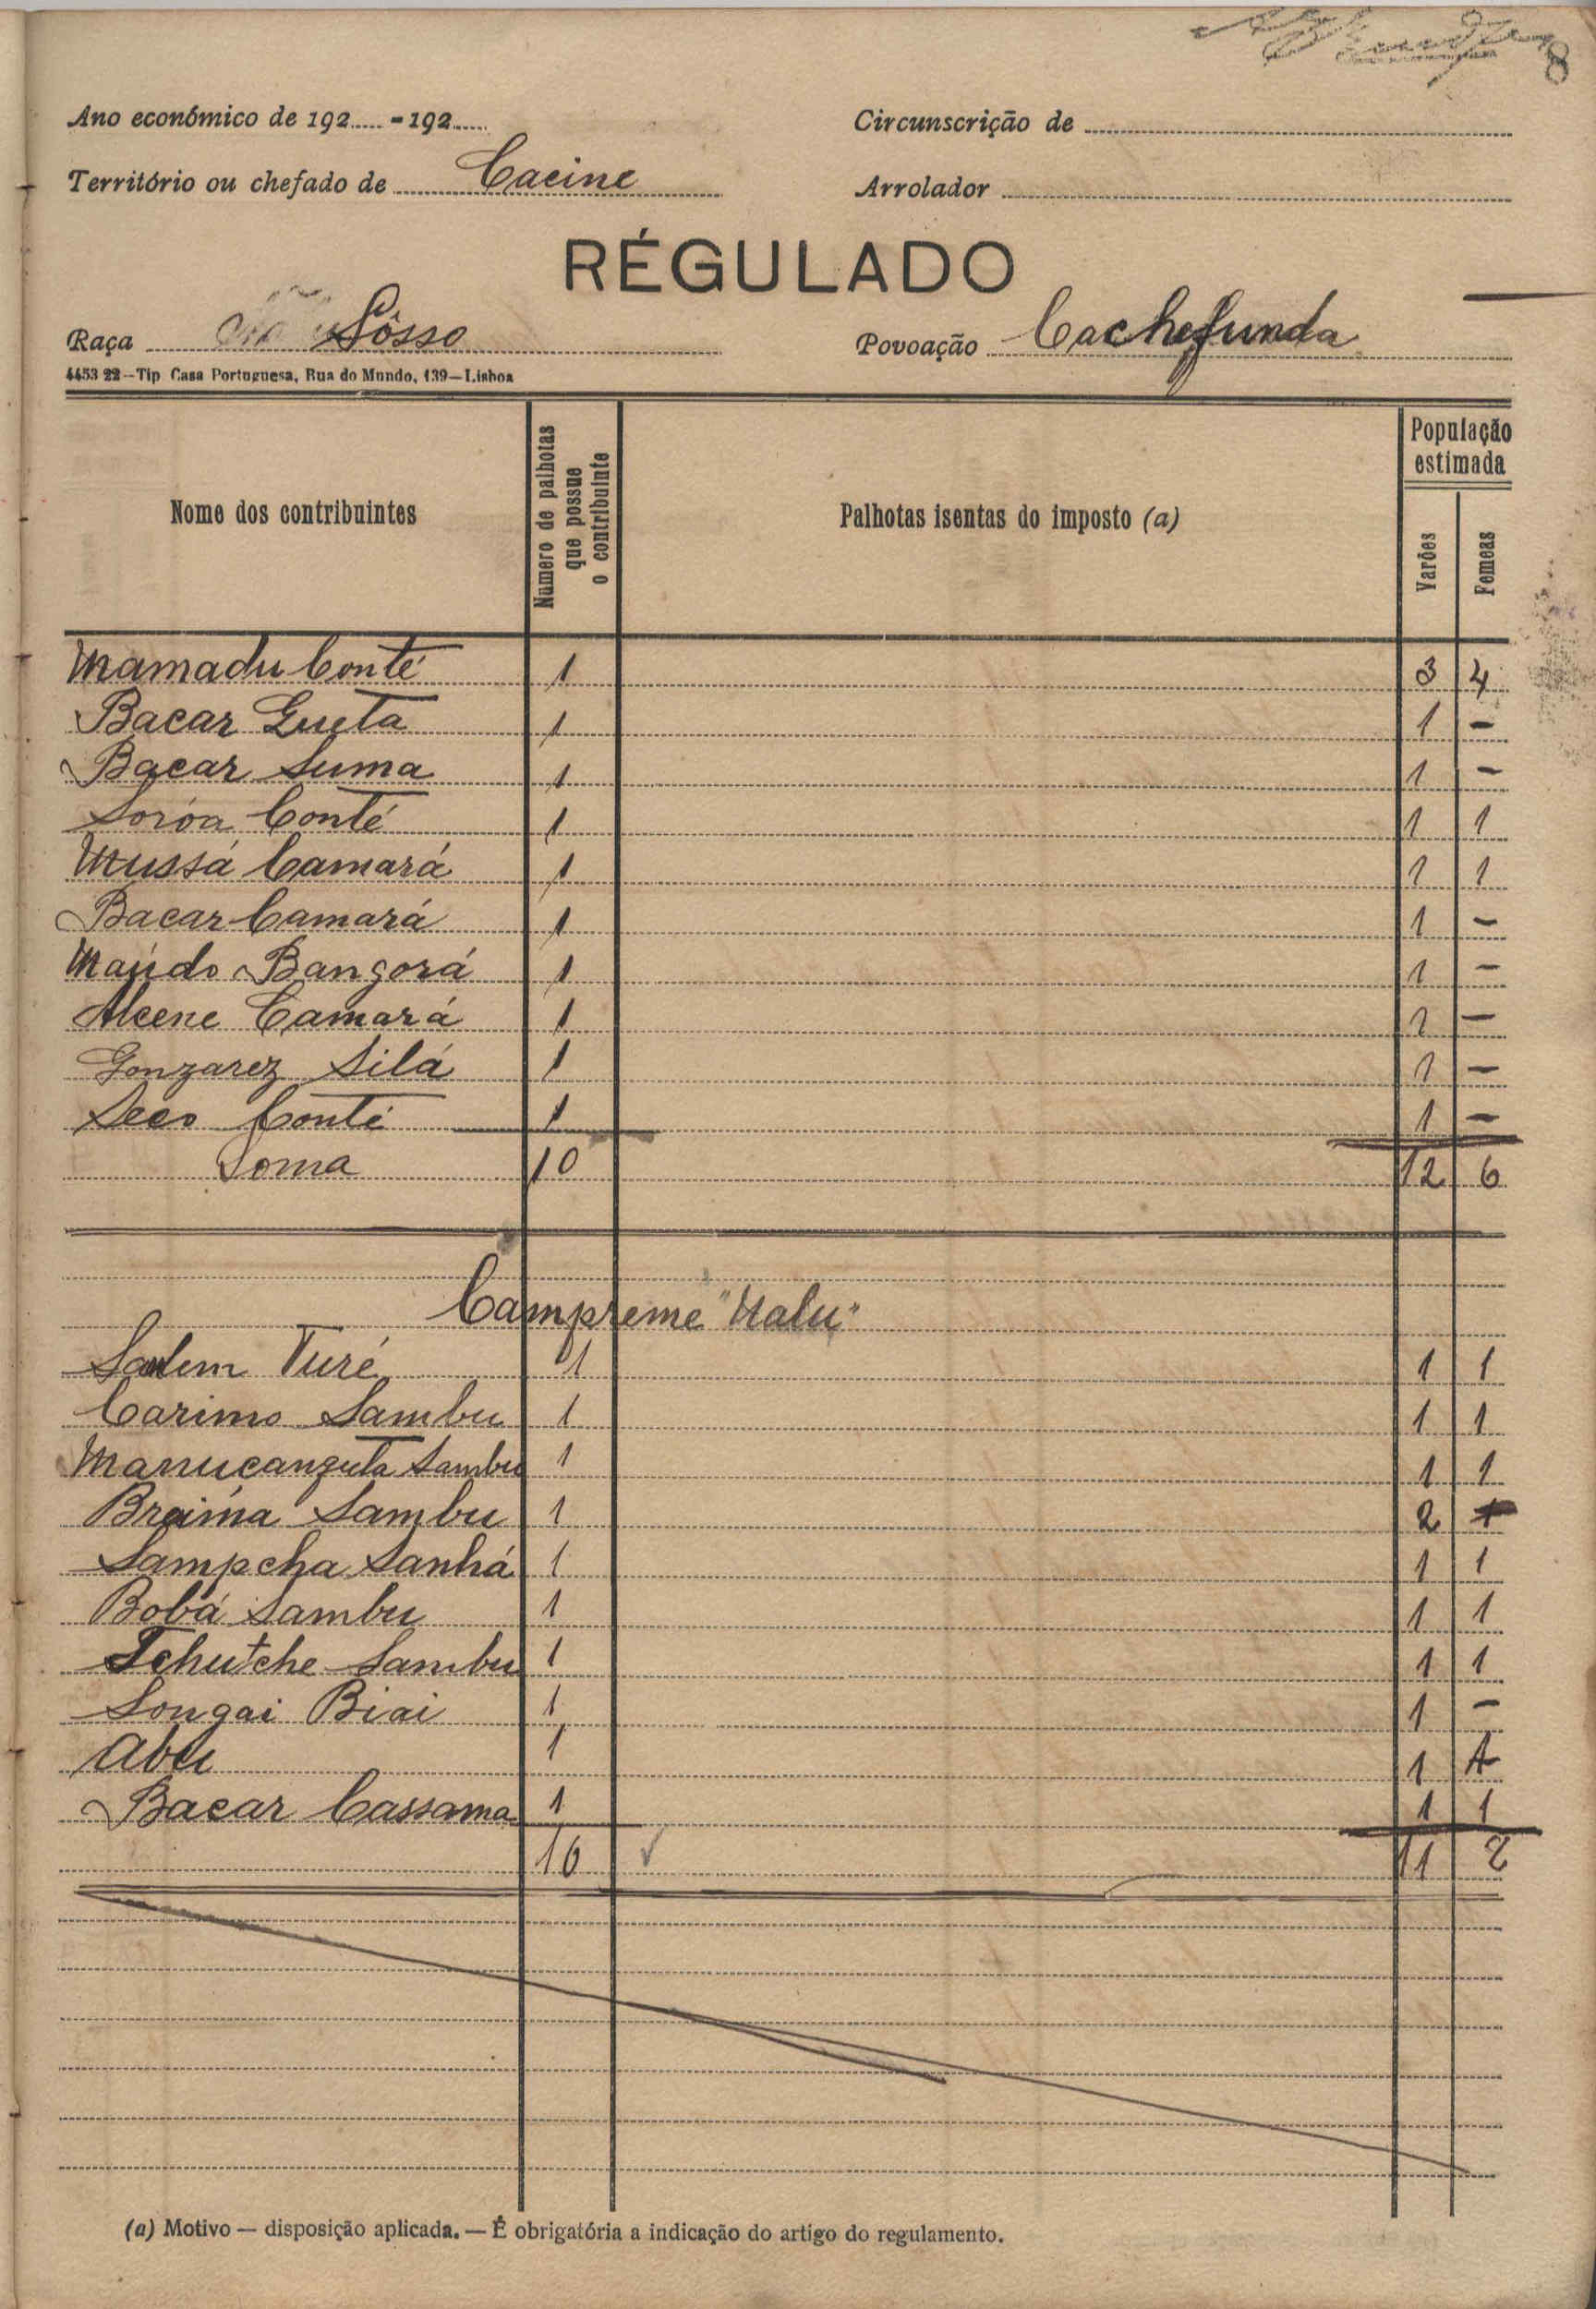 8
Ano económico de 192..... - 192.....
Circunscrição de
Território ou chefado de Cacine
Arrolador
RÉGULADO
Raça Sôsso
Povoação Cachefunda
4453 22—Tip Casa Portuguesa, Rua do Mundo, 139—Lisboa
Nome dos contribuintes
Numero de palhotas que possue o contribuinte
Palhotas isentas do imposto (a)
População estimada
Varões
Femeas
Mamadu Conté 1 3 4
Bacar Gueta 1 1 -
Bacar Suma 1 1 -
Soróa Conté 1 1 1
Mussá Camará 1 1 1
Bacar Camará 1 1 -
Maúdo Bangorá 1 1 -
Alcene Camará 1 1 -
Gonzarez Silá 1 1 -
Seco Conté 1 1 -
Soma 10 12 6
Campreme "Nalu"
Salem Turé 1 1 1
Carimo Sambu 1 1 1
Manucanguta Sambu 1 1 1
Braima Sambu 1 2
Sampcha Sanhá 1 1 1
Bobá Sambu 1 1 1
Tchutche Sambu 1 1 1
Songai Biai 1 1 -
Abu 1 1
Bacar Cassama 1 1 1
10 11
(a) Motivo — disposição aplicada. — É obrigatória a indicação do artigo do regulamento.